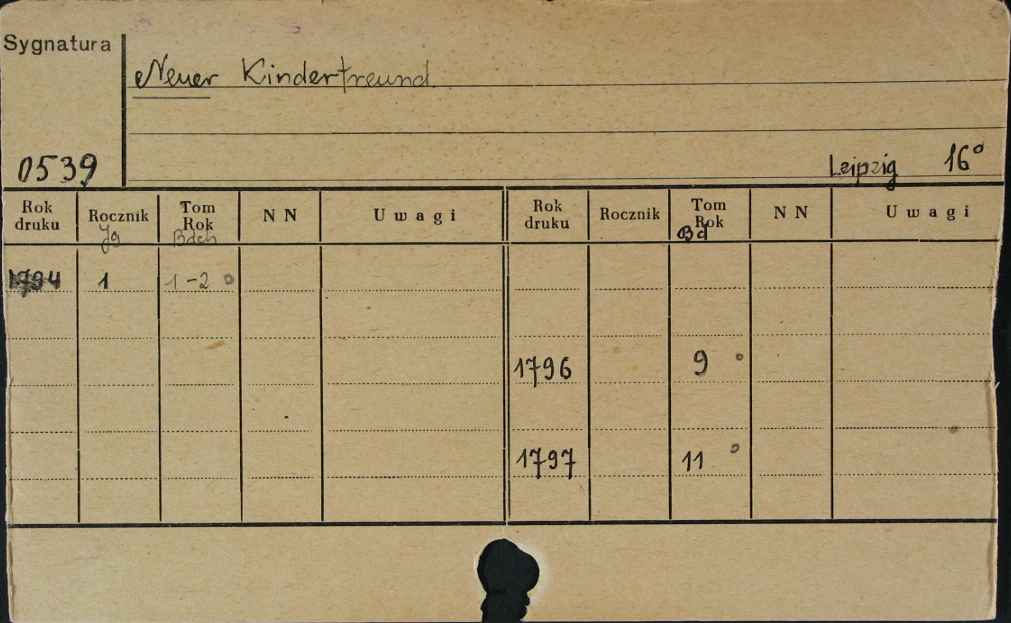 Sygnatura
Neuer Kinderfreund.
0539
Leipzig 16°
Rok druku Rocznik Jg Tom Rok Bdch N N Uwagi Rok druku Rocznik Tom Rok Bd N N Uwagi
1794 1 1-2 °
1796 9 °
1797 11 °